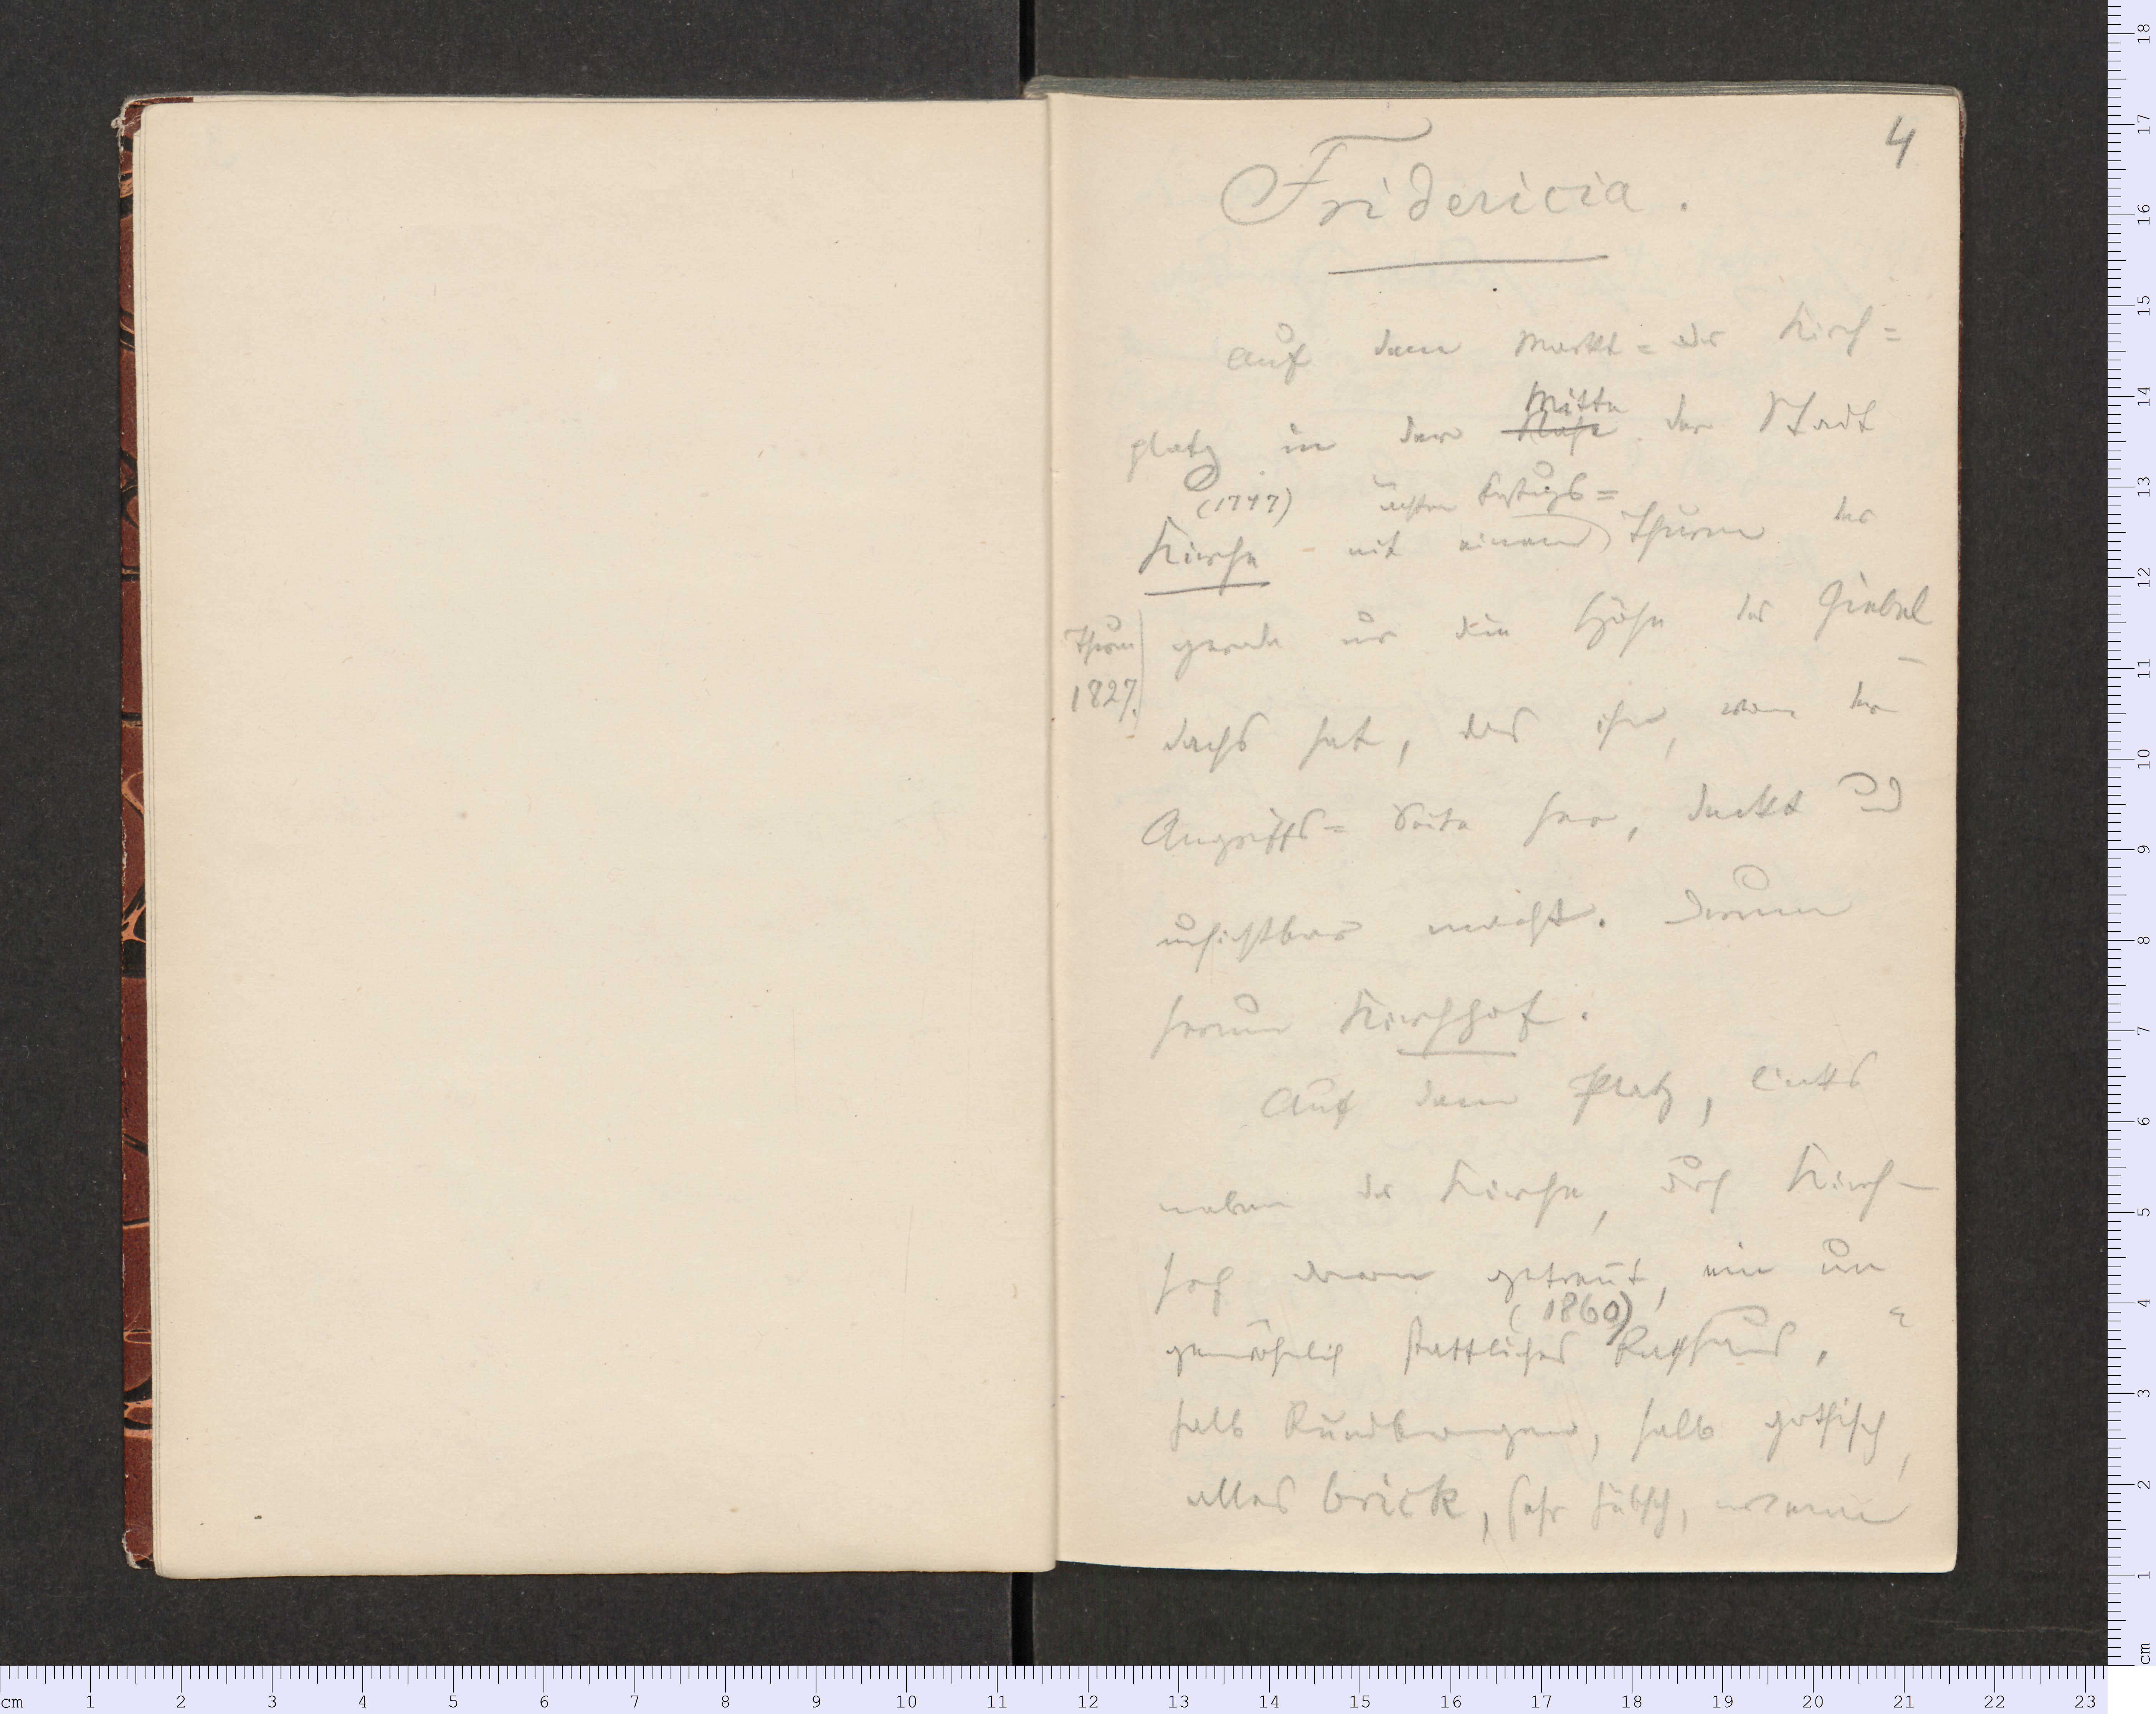 4
Fridericia.
Auf dem Markt= oder Kirch=
platz in der Nähe Mitte der Stadt
(1747) ächten Festungs=
Kirche mit einem Thurm der
Thurm gerade nur die Höhe des Giebel
1827.
dachs hat, das ihn, von der
Angriffs= Seite her, deckt und
unsichtbar macht. Darum
herum Kirchhof.
Auf dem Platz, links
neben der Kirche, durch Kirch-
hof davon getrennt, ein un
(1860)
gewöhnlich stattliches Rathhaus,
halb Rundbogen, halb gothisch,
alles brick, sehr hübsch,